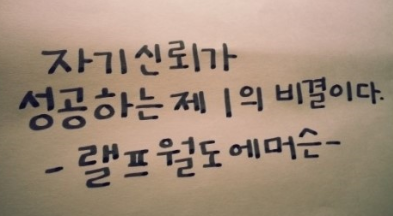 자기신뢰가
성공하는 제 1의 비결이다.
- 랠프 월도 에머슨-